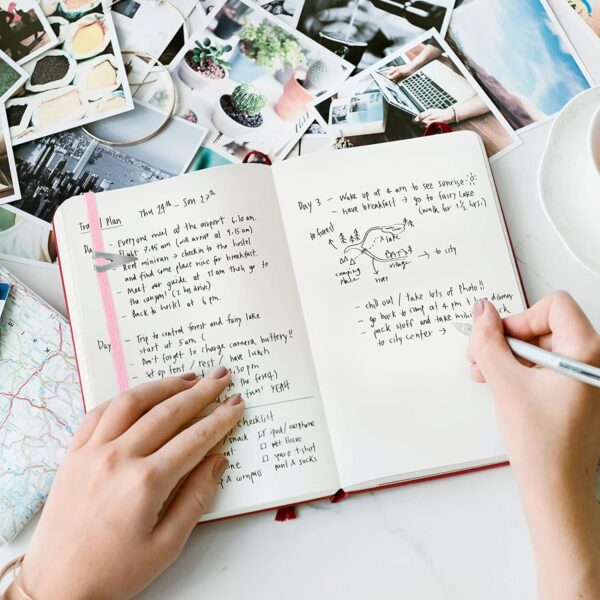 Travel Plan Thu 24th - Sun 27th
Day
- Everyone meet at the airport 6.30 am.
Flight 7.45 am (will arrive at 9.15 am)
- Rent minivan → checkin to the hostel
and find some place nice for breakfast.
- Meet our guide at 11 am then go to
the canyon! (2 hrs drive)
- Back to hostel at 6 pm.
Day
- Trip to central forest and fairy lake
start at 5 am (
- Don't forget to charge camera battery!!
- Set up tent / rest / have lunch
1.30 pm
through the forest)
fun! YEAH
checklist
snack
ipod/earphone
wet tissue
spare t-shirt
pant & socks
& compass
Day 3 - Wake up at 4 am to see sunrise
- have breakfast → go to fairy lake
(walk for 1 1/2 hrs.)
to forest
lake
camping place
river
village
→ to city
- chill out / take lots of photo!!
- go back to camp at 4 pm dinner
- pack stuff and take back
to city center →